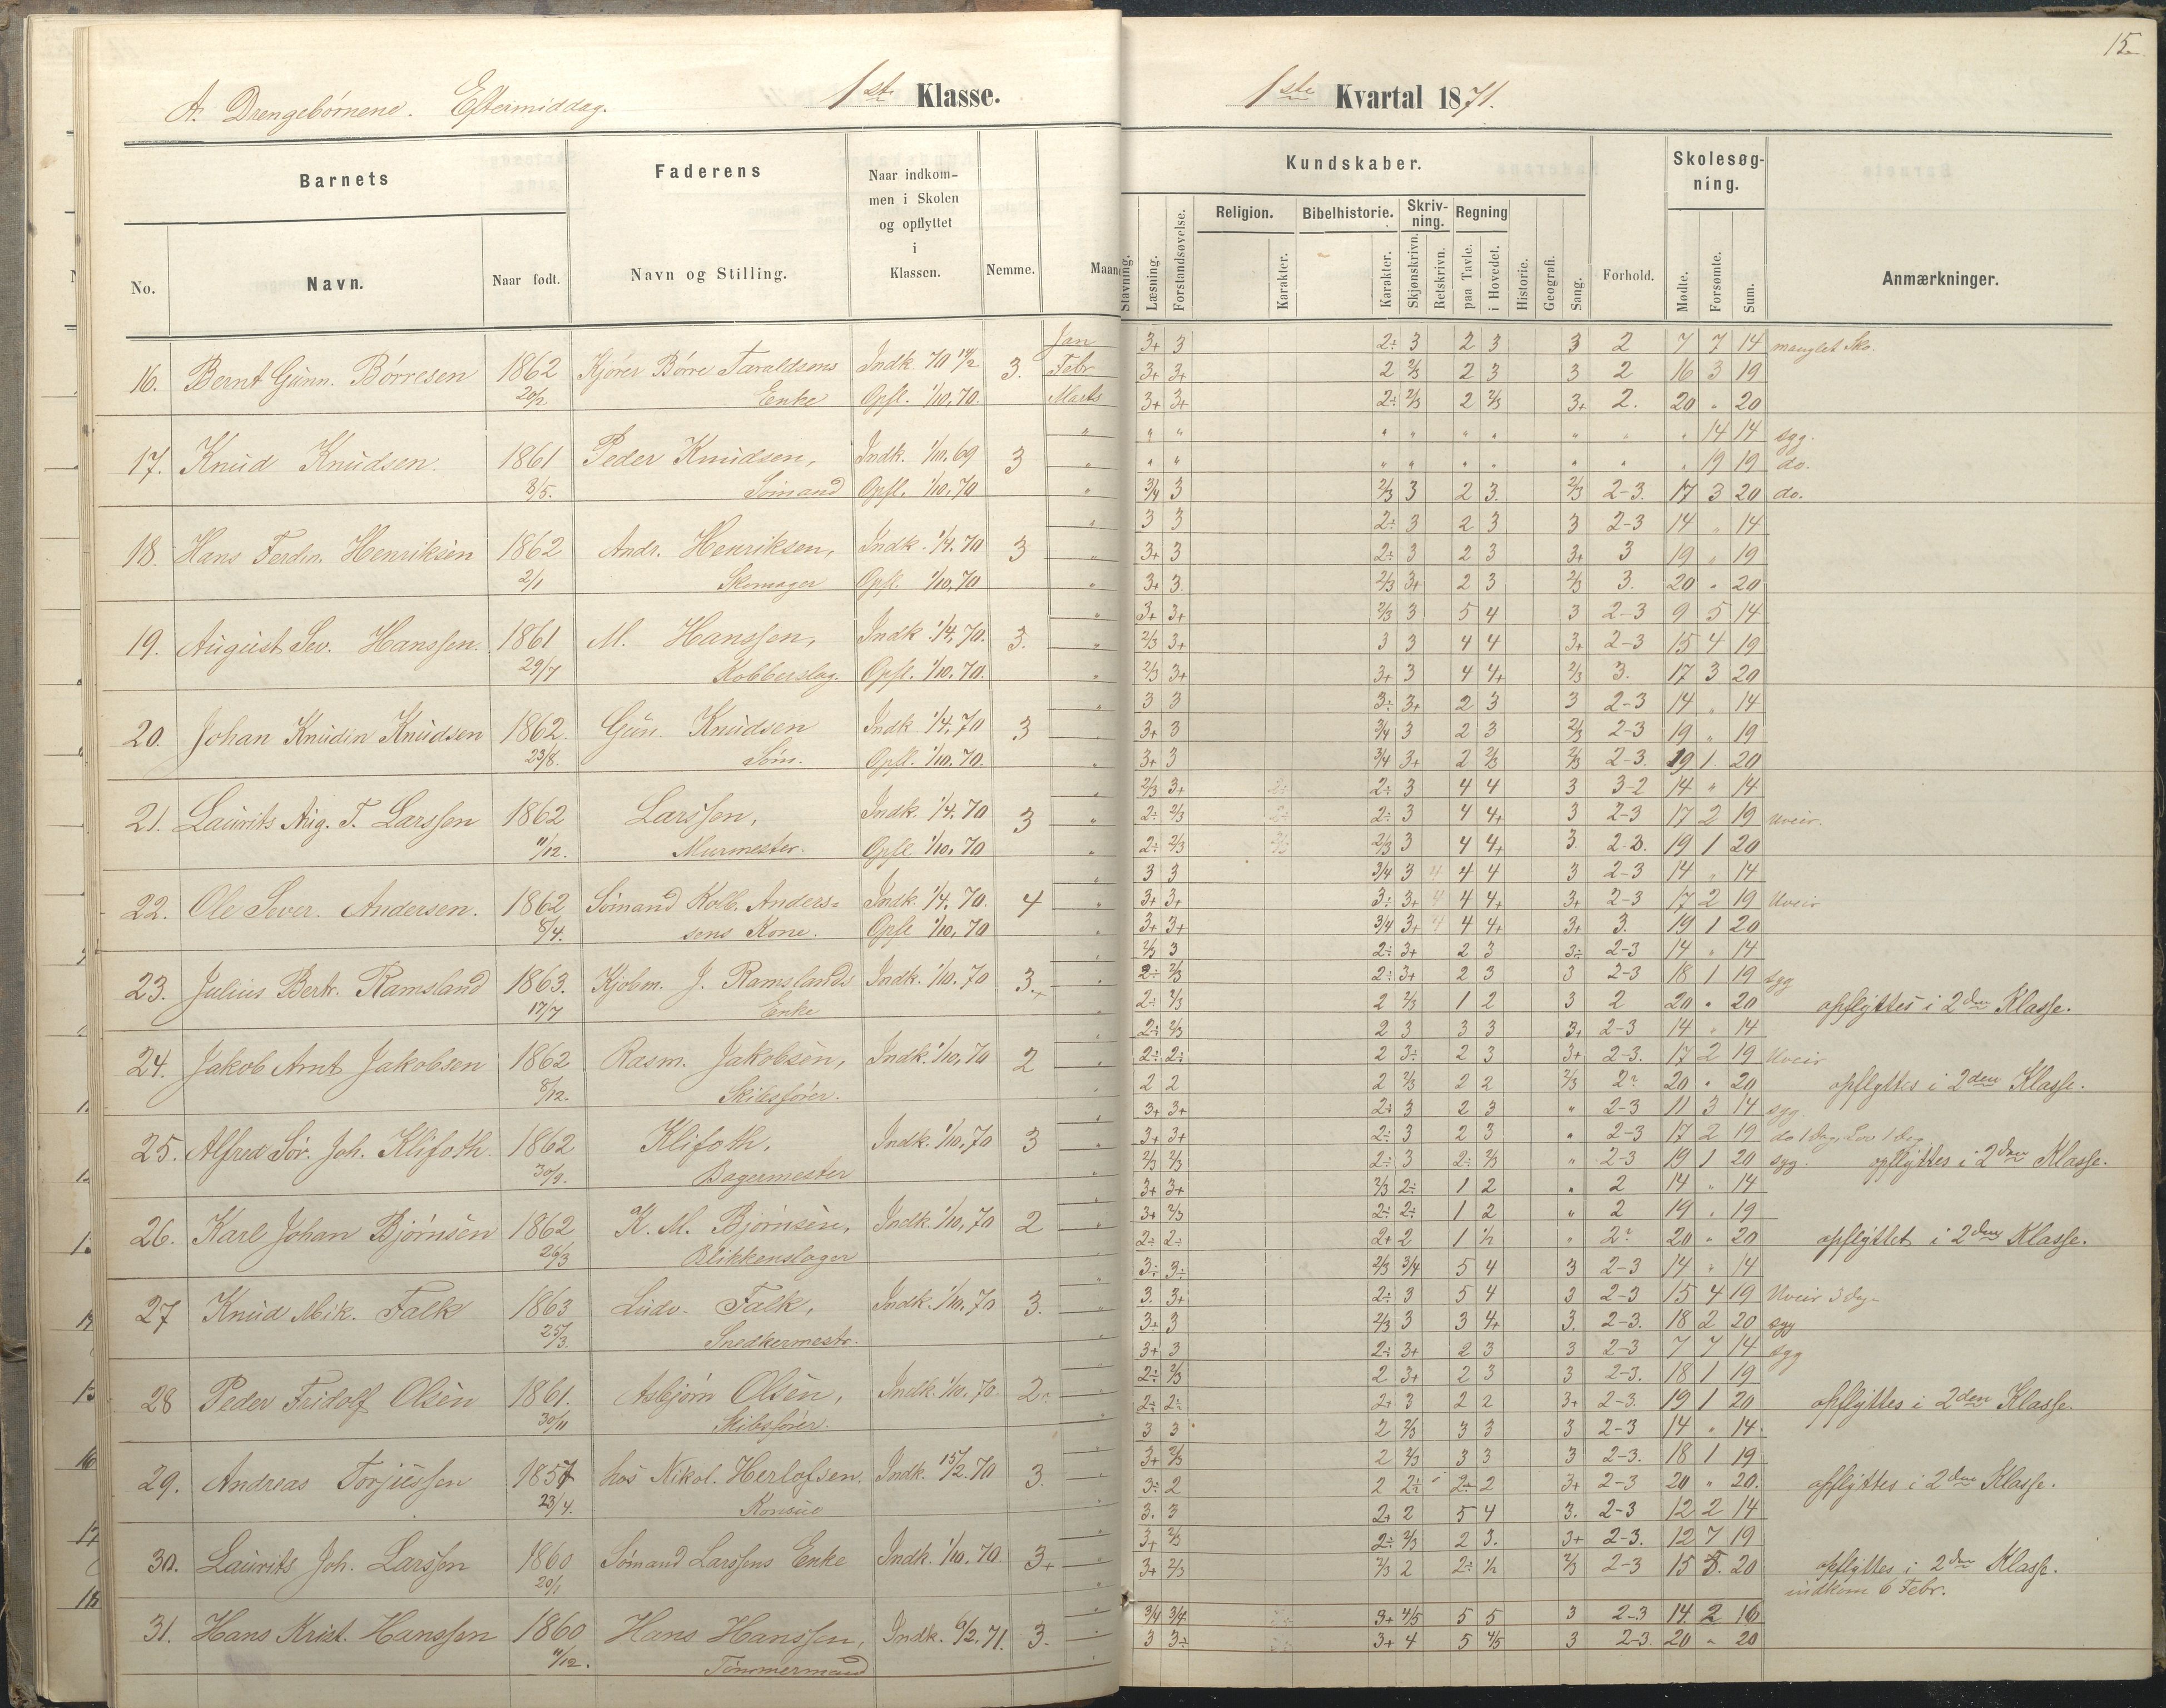 15
A. Drengebørnene. Eftermiddag. 1ste Klasse. 1ste Kvartal 1871.
Barnets Faderens Naar indkommen i Skolen og opflyttet i Klassen. Nemme. Maaned Kundskaber. Forhold. Skolesøgning. Anmærkninger.
No. Navn. Naar født. Navn og Stilling.
Stavning. Læsning. Forstandsøvelse. Religion. Karakter. Bibelhistorie. Karakter. Skrivning. Skjønskrivn. Retskrivn. Regning paa Tavle. i Hovedet. Historie. Geografi. Sang. Mødte. Forsømte. Sum.
Jan 3+ 3 2÷ 3 2 3 3 2 7 7 14 manglet Sko.
16. Bernt Gunn. Börresen 1862 Kjörer Börre Taraldsens Indk. 70 14/2 3. Febr 3+ 3+ 2 2/3 2 3 3 2 16 3 19
20/2 Enke Opfl. 1/10. 70. Marts 3+ 3+ 2÷ 2/3 2 2/3 3+ 2. 20 " 20
" " " " " " " " " " 14 14 syg.
17. Knud Knudsen. 1861 Peder Knudsen, Indk. 1/10. 69 3 " " " " " " " " " " 19 19 do.
8/5. Sömand Opfl. 1/10. 70 " 3/4 3 2/3 3 2 3. 2/3 2-3. 17 3 20 do.
" 3 3 2÷ 3 2 3 3 2-3 14 " 14
18. Hans Ferdin. Henriksen 1862 Andr. Henriksen, Indk. 1/4. 70 3 " 3+ 3 2÷ 3 2 3 3+ 3 19 " 19
2/1 Skomager Opfl. 1/10, 70 " 3+ 3. 2/3 3+ 2 3 2/3 3. 20 " 20
" 3+ 3+ 2/3 3 5 4 3 2-3 9 5 14
19. August Sev. Hanssen. 1861 M. Hanssen, Indk 1/4. 70. 3. " 2/3 3+ 3 3 4 4 3+ 2-3 15 4 19
29/7 Kobberslag. Opfl. 1/10. 70. " 2/3 3+ 3+ 3 4 4+ 2/3 3. 17 3 20
" 3 3 3÷ 3+ 2 3 3 2-3 14 " 14
20. Johan Knudin Knudsen 1862. Gun. Knudsen Indk 1/4. 70 3 " 3+ 3 3/4 3 2 3 2/3 2-3 19 " 19
23/8. Söm. Opfl. 1/10. 70. " 3+ 3 3/4 3+ 2 2/3 2/3 2-3. 19 1 20
" 2/3 3+ 2÷ 3 4 4 3 3-2 14 " 14
21. Laurits Aug. T. Larssen 1862 Larssen, Indk. 1/4. 70 3 " 2÷ 2/3 2÷ 3 4 4+ 3 2-3 17 2 19 Uveir.
11/12. Murmester. Opfl. 1/10. 70 " 2÷ 2/3 2/3 3 4 4+ 3. 2-3. 19 1 20
" 3 3 3/4 3 4 4 4 3 2-3 14 " 14
22. Ole Sever. Andersen. 1862 Sömand Kolb. Anders= Indk. 1/4. 70. 4 " 3+ 3+ 3÷ 3+ 4 4 4+ 3+ 2-3 17 2 19 Uveir
8/4. sens Kone. Opfl 1/10. 70 " 3+ 3+ 3/4 3+ 4 4 4+ 3+ 3. 19 1 20
" 2/3 3 2÷ 3+ 2 3 3÷ 2-3 14 " 14
23. Julius Bertr. Ramsland 1863. Kjöbm. J. Ramslands Indk. 1/10. 70 3.+ " 2÷ 2/3 2÷ 3+ 2 3 3 2-3 18 1 19 syg
17/7 Enke " 2÷ 2/3 2 2/3 1 2 3 2 20 " 20 opflyttes i 2den Klasse.
" 2÷ 2/3 2 3 3 3 3+ 2-3 14 " 14
24. Jakob Arnt Jakobsen 1862 Rasm. Jakobsen, Indk. 1/10, 70 2 " 2÷ 2÷ 2 3÷ 2 3 3+ 2-3. 17 2 19 Uveir
8/12. Skibsförer. " 2 2 2 2/3 2 2 2/3 2÷ 20 " 20 opflyttes i 2den Klasse.
" 3+ 3+ 2÷ 3 2 3 " 2-3 11 3 14 syg.
25. Alfred Sör. Joh. Klifoth. 1862 Klifoth, Indk. 1/10, 70 3 " 3+ 3+ 2÷ 3 2 3 " 2-3 17 2 19 do 1 Dag, Lov 1 Dag.
30/9. Bagermester 2/3 2/3 2÷ 3 2÷ 2/3 " 2-3 19 1 20 syg. opflyttes i 2den Klasse.
3+ 3+ 2/3 2÷ 1 2 " 2 14 " 14
26. Karl Johan Björnsen 1862 K. M. Björnsen, Indk. 1/10, 70 2 " 3+ 2/3 2÷ 2÷ 1 2 " 2 19 " 19
26/3 Blikkenslager 2÷ 2÷ 2+ 2 1 1/2 " 2÷ 20 " 20 opflyttet i 2den Klasse.
" 3÷ 3÷ 2/3 3/4 5 4 3 2-3 14 " 14
27 Knud Mik. Falk 1863 Ludv. Falk, Indk. 1/10. 70 3. " 3. 3+ 2÷ 3 5 4 3 2-3 15 4 19 Uveir 3 Dag.
25/3. Snedkermestr. 3÷ 3 2/3 3 3 4+ 3. 2-3. 18 2 20 syg
" 3+ 3 2÷ 3+ 2 3 3 2-3 7 7 14 syg
28 Peder Fridolf Olsen 1861. Asbjörn Olsen, Indk. 1/10. 70. 2÷ " 2÷ 2/3 2 3+ 2 3 3 2-3. 18 1 19
30/11 Skibsförer. " 2÷ 2÷ 2+ 3 2 2 3+ 2-3. 19 1 20 opflyttes i 2den Klasse.
" 3 3 2 2/3 3 3 3 2-3 14 " 14.
29. Andreas Torjussen 1857 hos Nikol. Herlofsen. Indk. 15/2. 70 3. " 3+ 2/3 2 2/3 3 3 3 2-3. 18 1 19
23/4. " 3÷ 2 2 2÷ 2÷ 2 3+ 2-3 20 " 20. opflyttes i 2den Klasse.
" 3. 3 2+ 2 5 4 3. 2-3 12 2 14
30. Laurits Joh. Larssen 1860 Sömand Larssens Enke Indk. 1/10. 70. 3+ " 3+ 2/3 2÷ 2/3 2 3. 3+ 2-3. 12 7 19
20/1 " 3+ 2/3 2/3 2 2÷ 1/2 2/3 2-3 15 5. 20 opflyttes i 2den Klasse.
indkom 6 Febr.
" 3/4 3/4 3+ 4/5 5 5 3 2-3 14 2 16
31. Hans Krist. Hanssen 1860 Hans Hanssen, Indk. 6/2. 71. 3. " 3 3÷ 3+ 4 5 4/5 3 2-3. 20 " 20
11/12. Tömmermand